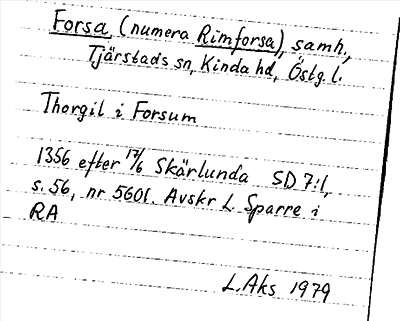 Forsa (numera Rimforsa), samh.,
Tjärstads sn, Kinda hd, Östg. l.
Thorgil i Forsum
1356 efter 17/6 Skärlunda SD 7:1,
s. 56, nr 5601. Avskr L. Sparre i
RA
L. Aks 1979